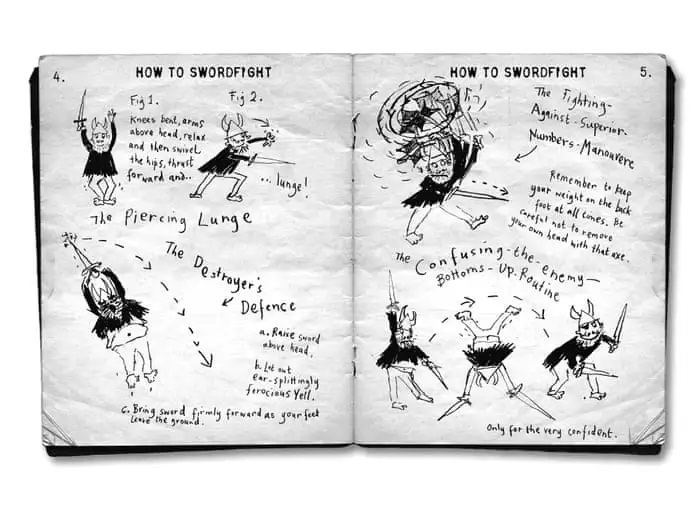 4.
HOW TO SWORDFIGHT
Fig 1.
Fig 2.
Knees bent, arms
above head, relax
and then swivel
the hips, thrust
forward and...
... lunge!
The Piercing Lunge
The Destroyer's
Defence
a. Raise sword
above head.
b. Let out
ear-splittingly
ferocious Yell.
c. Bring sword firmly forward as your feet
leave the ground.
HOW TO SWORDFIGHT
5.
The Fighting-
Against-Superior-
Numbers-Manouvere
Remember to keep
your weight on the back
foot at all times. Be
careful not to remove
your own head with that axe.
The Confusing-the-enemy-
Bottoms-Up-Routine
Only for the very confident.